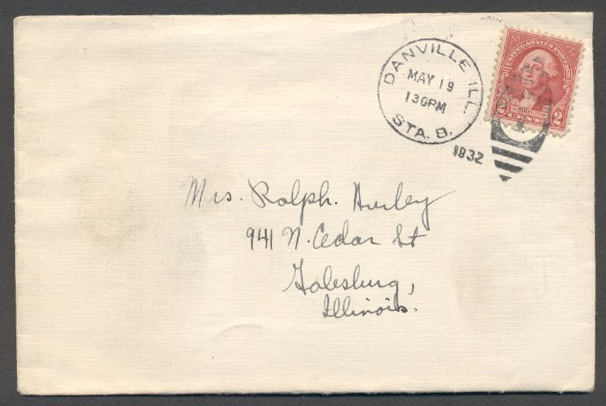 DANVILLE ILL.
MAY 19
130PM
STA. B.
1932
UNITED STATES POSTAGE
2 2
Mrs. Ralph. Hurley
941 N. Cedar St
Galesburg,
Illinois.